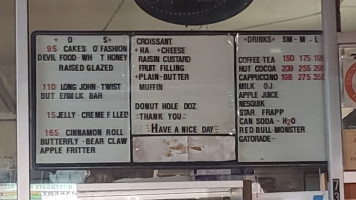 O S
95 CAKES O FASHION
DEVIL FOOD-WH T HONEY
RAISED GLAZED
110 LONG JOHN-TWIST
BUT ERMILK BAR
15 JELLY-CREME F LLED
165 CINNAMON ROLL
BUTTERFLY-BEAR CLAW
APPLE FRITTER
CROISSANT
HA CHEESE
RAISIN CUSTARD
FRUIT FILLING
PLAIN-BUTTER
MUFFIN
DONUT HOLE DOZ
THANK YOU
HAVE A NICE DAY
DRINKS SM-M-L
COFFEE-TEA 150 175 195
HOT COCOA 209 255 295
CAPPUCCINO 198 275 355
MILK OJ
APPLE JUICE
NESQUIK
STAR FRAPP
CAN SODA-H2O
RED BULL-MONSTER
GATORADE-